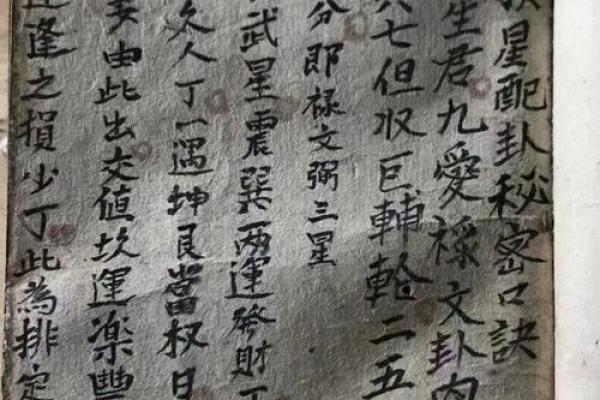 星配卦秘密口訣
生君九愛祿文卦内
六七但收巨輔輪二五
分郎祿文弼三星
武星震巽两運發財丁
久人丁一遇坤艮當权日
妄由此出交值坎運楽豊
逢之損少丁此為排定